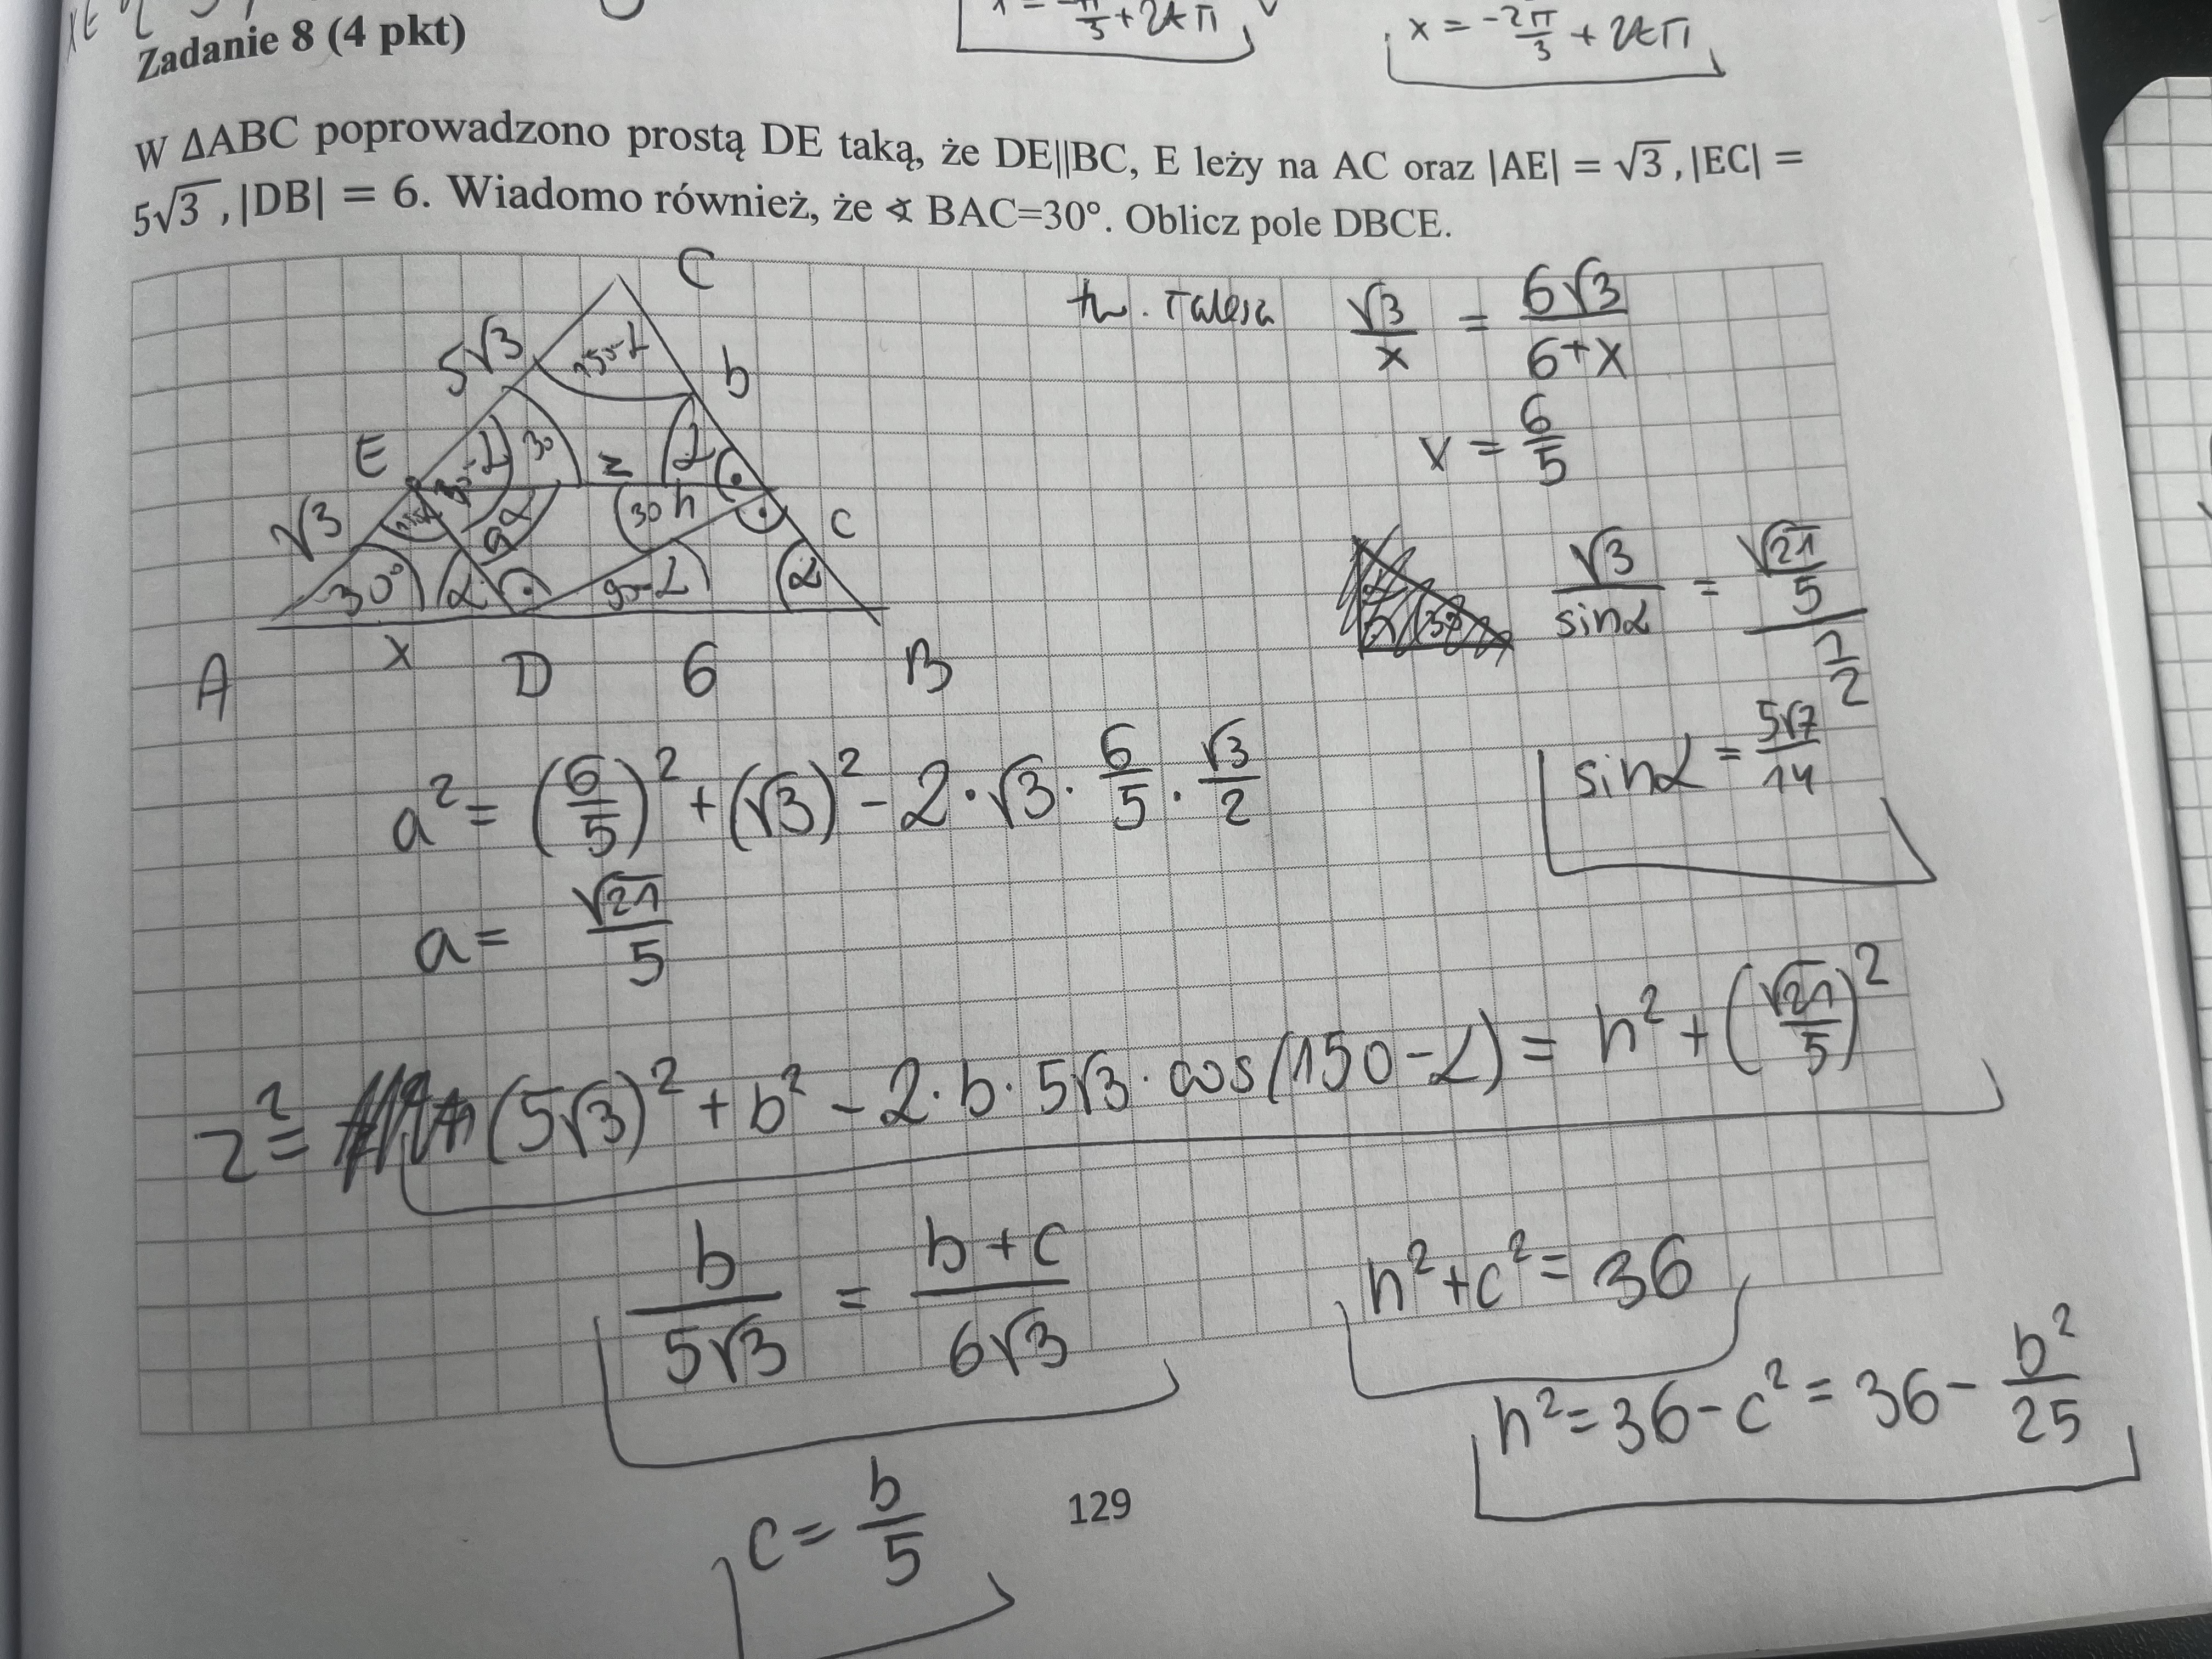 x = -π/3 + 2kπ
x = -2π/3 + 2kπ
Zadanie 8 (4 pkt)
W ΔABC poprowadzono prostą DE taką, że DE||BC, E leży na AC oraz |AE| = √3, |EC| =
5√3, |DB| = 6. Wiadomo również, że ∢ BAC=30°. Oblicz pole DBCE.
C
5√3
150-α
b
E
30
z
α
√3
α
30
h
c
30°
α
90-α
α
A
x
D
6
B
tw. Talesa √3/x = 6√3/(6+x)
x = 6/5
√3/sinα = (√21/5)/(1/2)
sinα = 5√7/14
a² = (6/5)² + (√3)² - 2·√3·6/5·√3/2
a = √21/5
z² = (5√3)² + b² - 2·b·5√3·cos(150-α) = h² + (√21/5)²
b/5√3 = (b+c)/6√3
h²+c²=36
h²=36-c²=36-b²/25
c=b/5
129